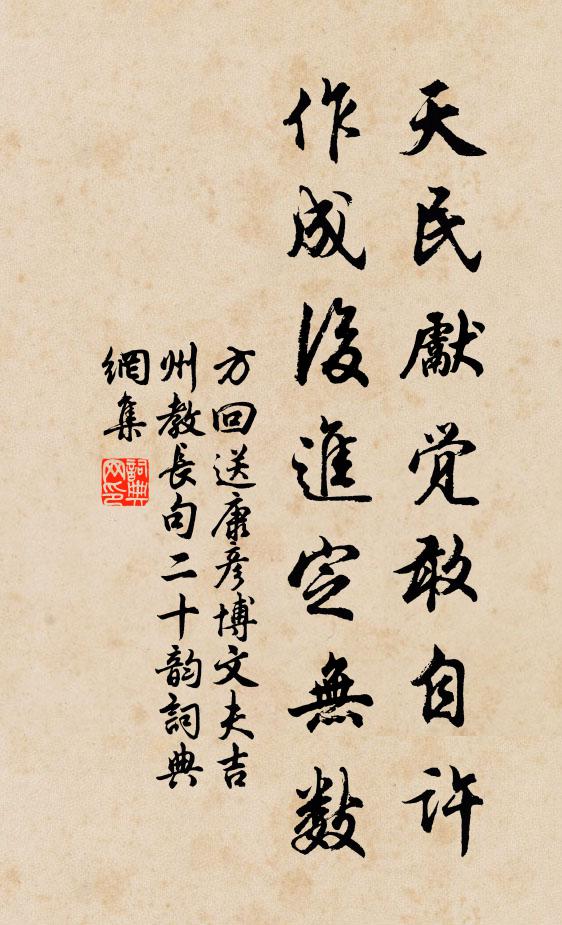 天民獻觉敢自许
作成後進定無数
方回送康彦博文夫吉
州教長句二十韵詞典
網集
詞典网印